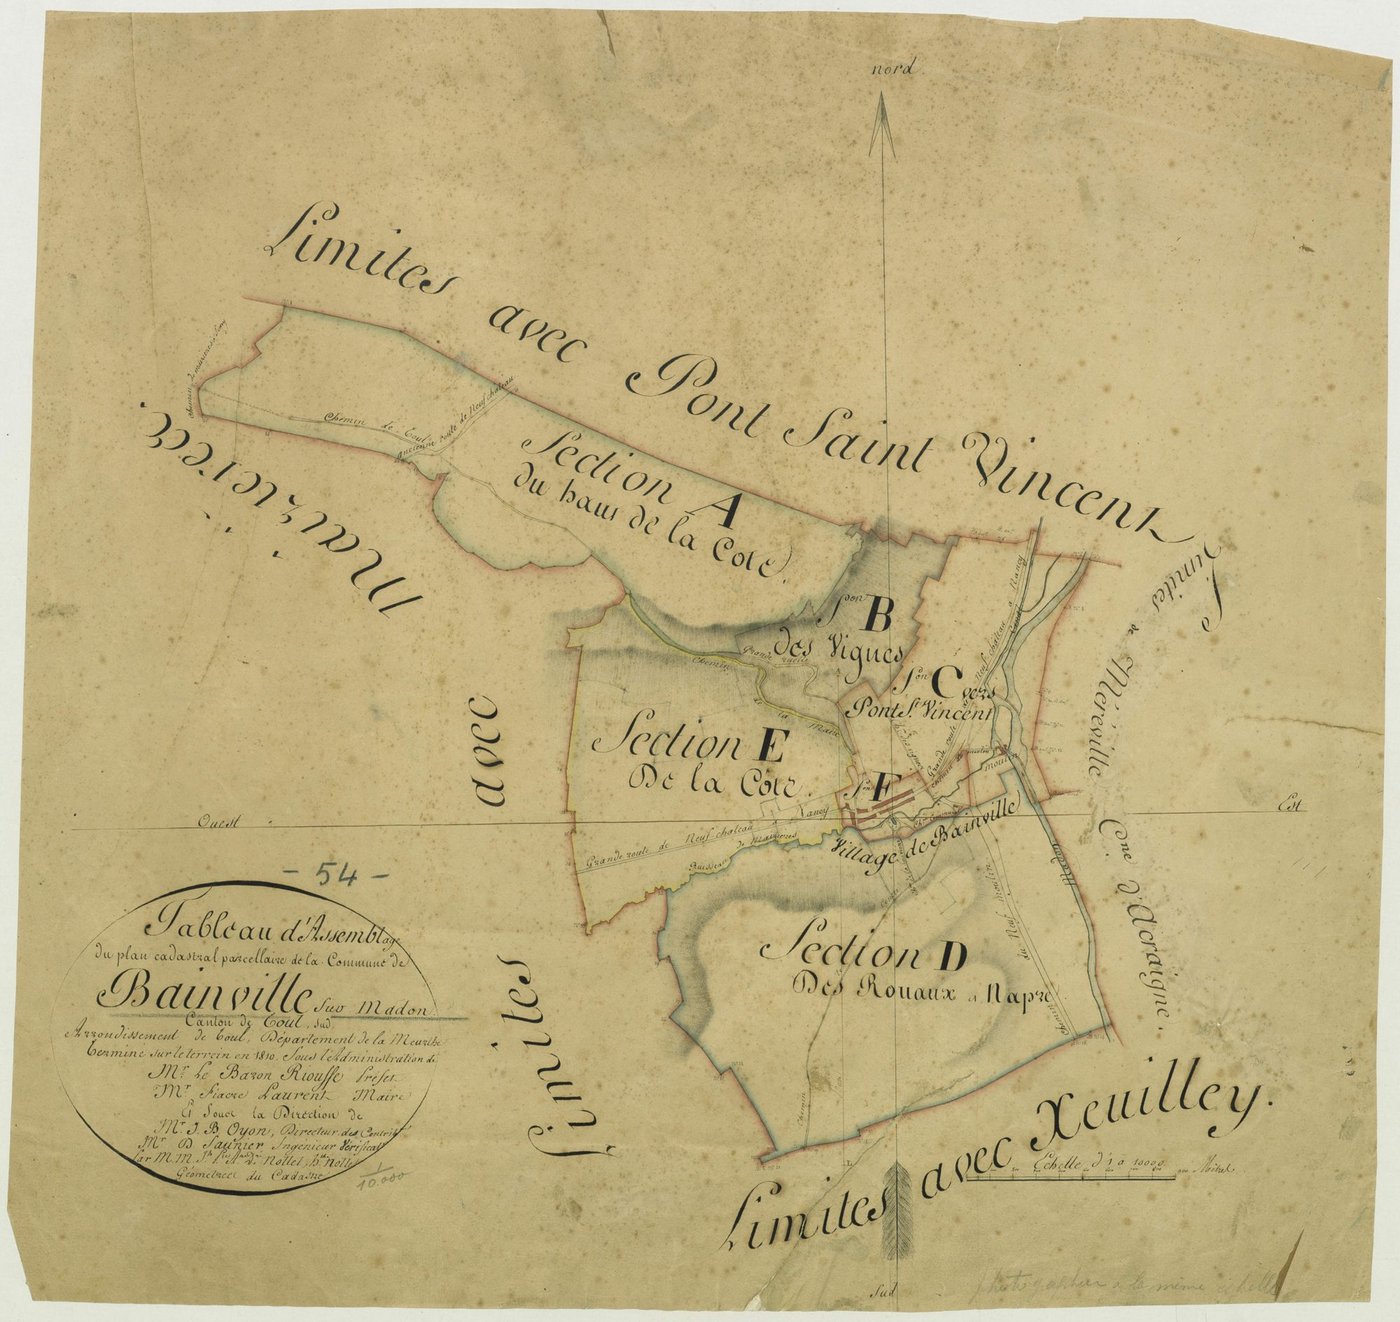 nord
Limites avec Pont Saint Vincent
Limites avec Maizieres.
Limites de Méréville Cne d'Acraigne.
Limites avec Xeuilley.
Chemin de Toul
ancienne route de Neufchateau
Section A
du haut de la Cote.
Son B
des Vignes
Grande ruelle
Chemin de la
Son C vers
Pont St Vincent
Section E
De la Côte.
Son F
Village de Bainville
Grande route de Neufchateau a Nancy
Ruisseau de Maizieres
moulin
Madon
Section D
Des Rouaux et Napré
Chemin
Ouest
Est
Sud
- 54 -
Tableau d'Assemblage
du plan cadastral parcellaire de la Commune de
Bainville sur Madon
Canton de Toul, sud.
Arrondissement de Toul, Département de la Meurthe
Terminé sur le terrein en 1810. Sous l'Administration de
Mr. Le Baron Riouffe Préfet
Mr Fiacre Laurent Maire
Et Sous la Direction de
Mr J. B. Oyon, Directeur des Contrib
Mr D Saunier Ingénieur Vérificat
Géometres du Cadastre
1/10.000
Echelle d'1 a 10000